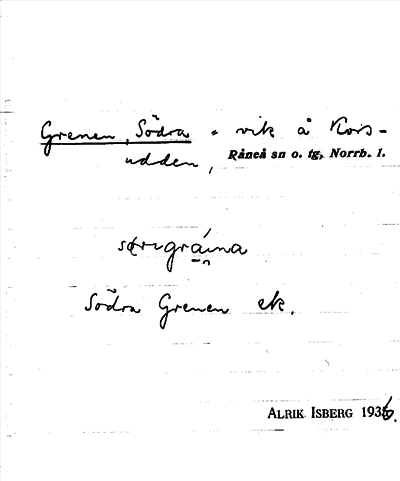 Grenen, Södra - vik å Kors-
udden,
Råneå sn o. tg, Norrb. l.
Södra Grenen ek.
ALRIK ISBERG 1936.